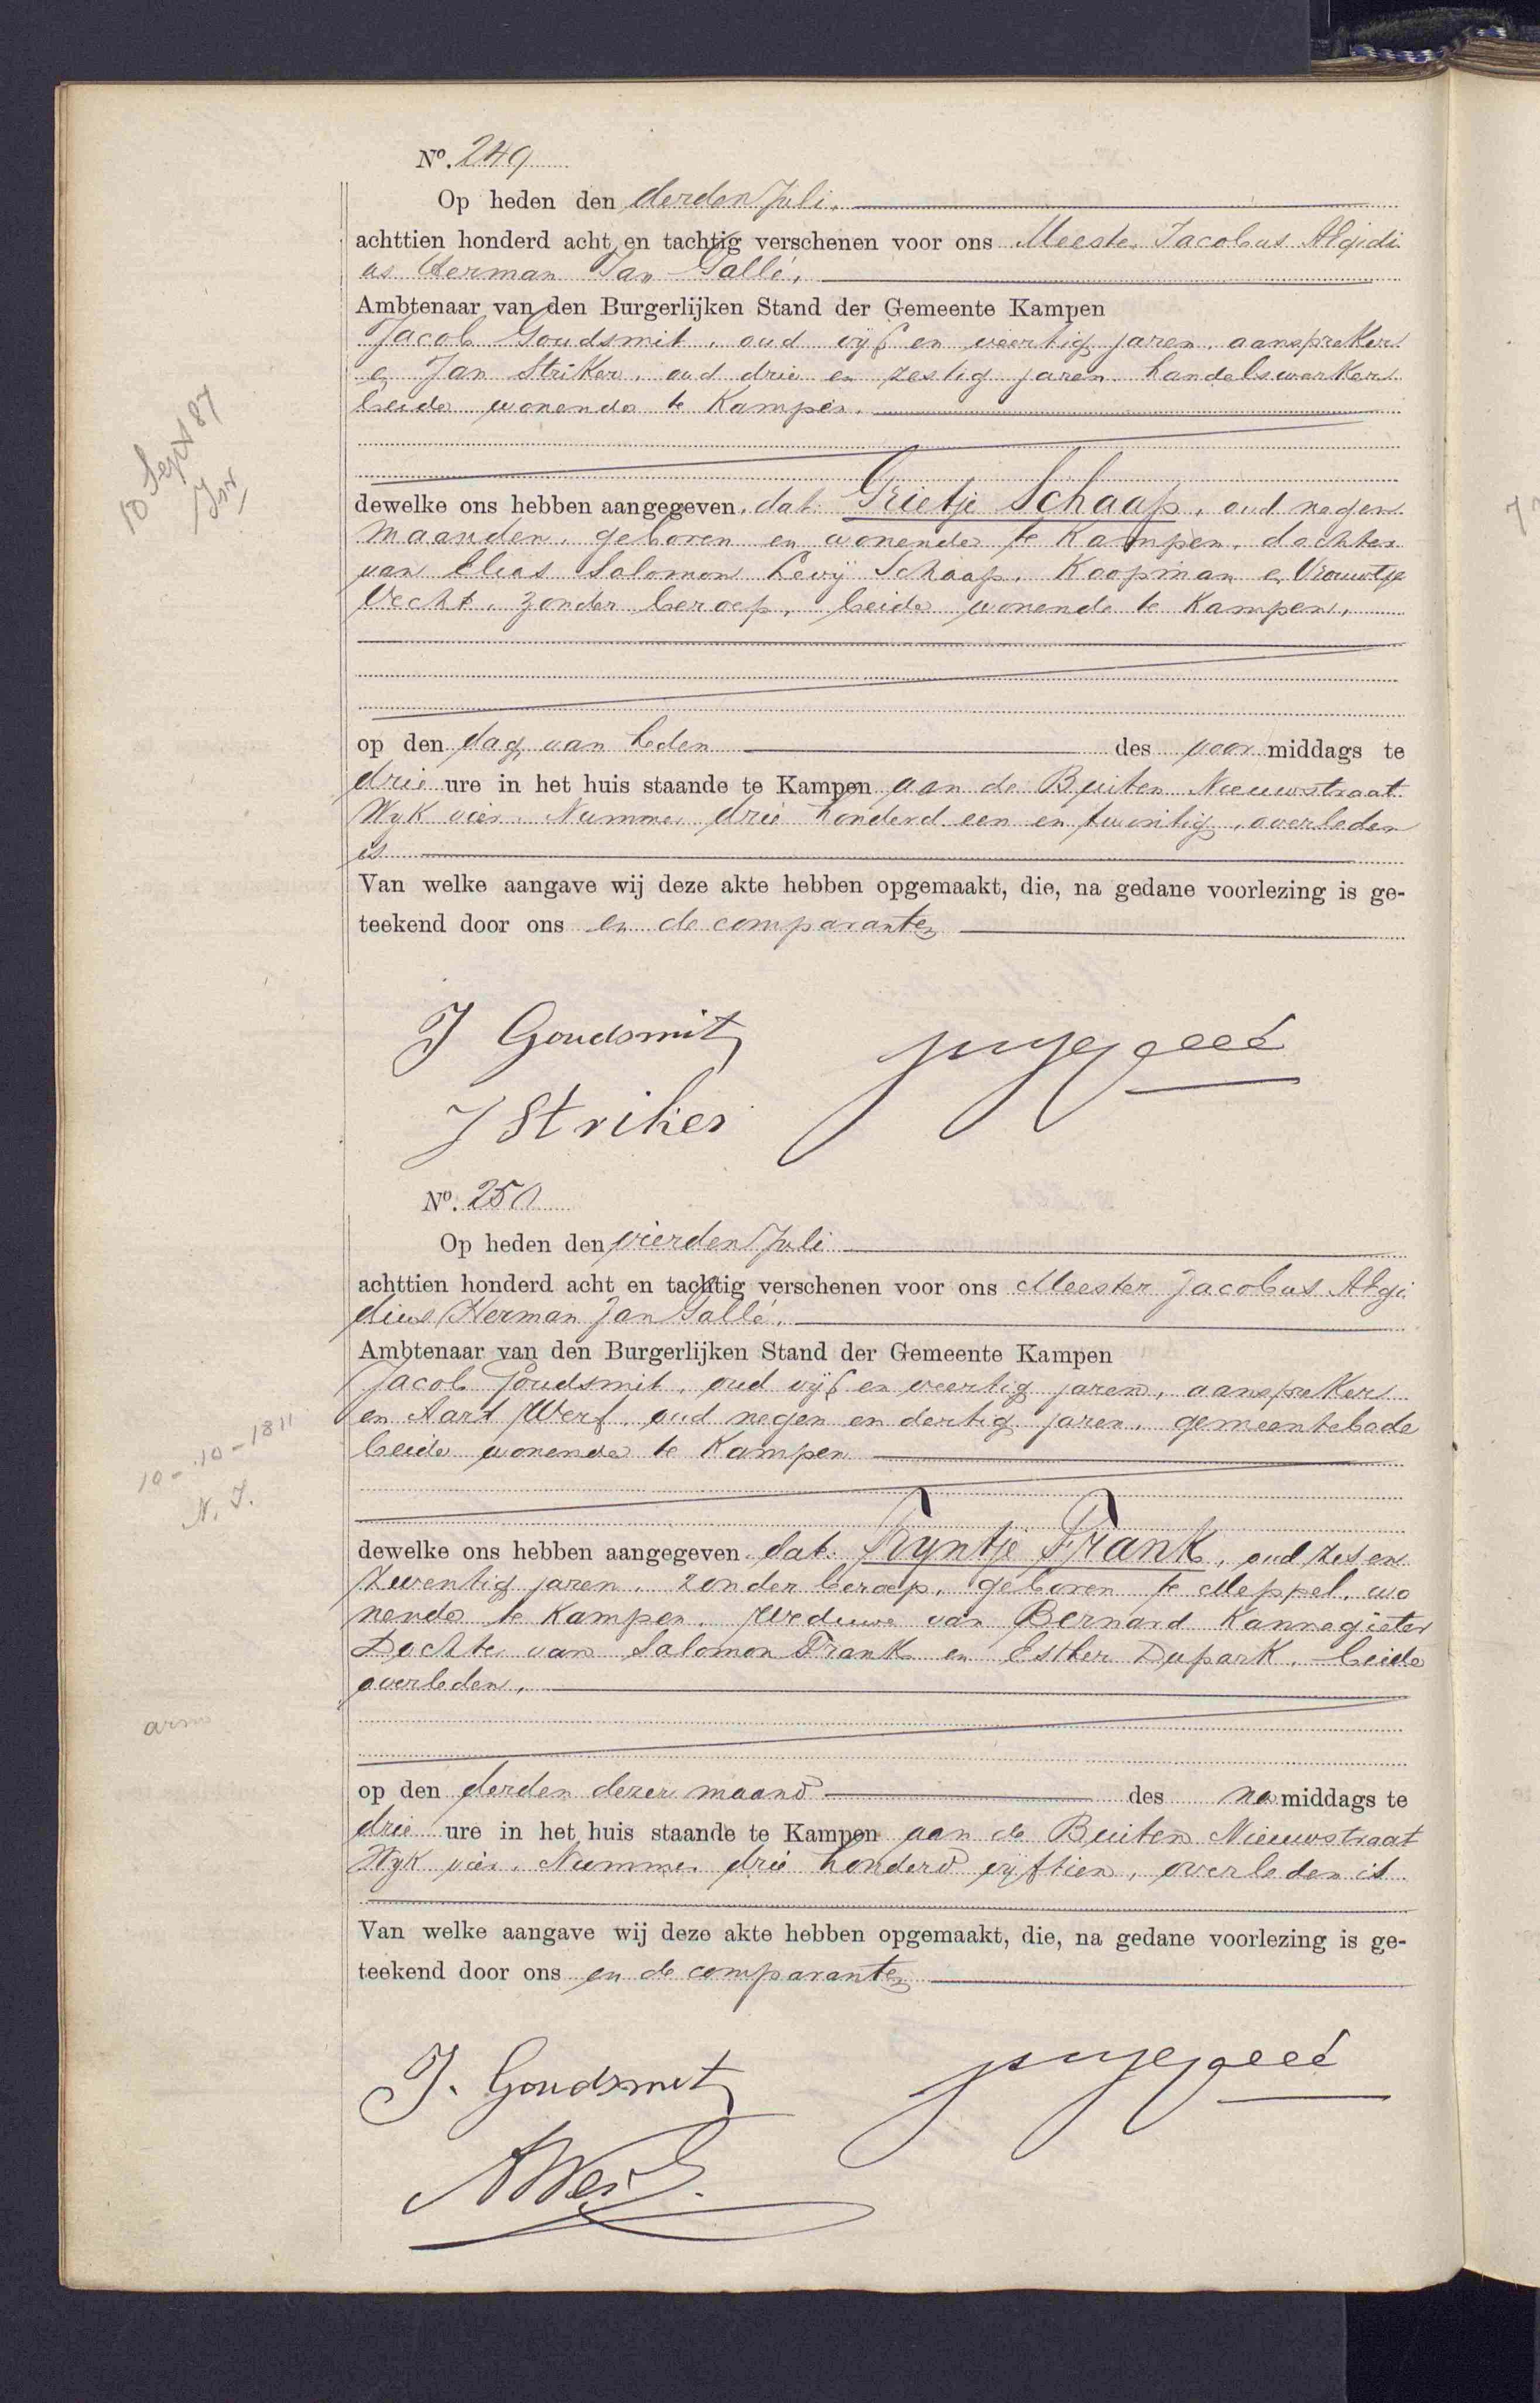 No. 249
Op heden den derden Juli.
achttien honderd acht en tachtig verschenen voor ons Meester Jacobus Algidi
us Herman Jan Gallé,
Ambtenaar van den Burgerlijken Stand der Gemeente Kampen
Jacob Goudsmit, oud vijf en veertig jaren, aanspreker
en Jan Striker, oud drie en zestig jaren handelswerker
beide wonende te Kampen.
18 Sept 87
Isr
dewelke ons hebben aangegeven, dat Grietje Schaap, oud negen
maanden, geboren en wonende te Kampen, dochter
van Elias Salomon Levij Schaap, Koopman en Vrouwtje
Vecht, zonder beroep, beide wonende te Kampen,
op den dag van heden des voor middags te
drie ure in het huis staande te Kampen aan de Buiten Nieuwstraat
Wyk vier, Nummer drie honderd een en twintig, overleden
is
Van welke aangave wij deze akte hebben opgemaakt, die, na gedane voorlezing is ge-
teekend door ons en de comparanten
J Goudsmit
J Striker
No. 250
Op heden den vierden Juli
achttien honderd acht en tachtig verschenen voor ons Meester Jacobus Algi
dius Herman Jan Gallé,
Ambtenaar van den Burgerlijken Stand der Gemeente Kampen
Jacob Goudsmit, oud vijf en veertig jaren, aanspreker
en Aart Werf, oud negen en dertig jaren, gemeentebode
beide wonende te Kampen
10-10-1811
N. I.
dewelke ons hebben aangegeven dat Tryntje Frank, oud zes en
zeventig jaren, zonder beroep, geboren te Meppel, wo
nende te Kampen, Weduwe van Bernard Kannegieter
Dochter van Salomon Frank en Esther Dupark, beide
overleden,
arm
op den derden dezer maand des na middags te
drie ure in het huis staande te Kampen aan de Buiten Nieuwstraat
Wyk vier, Nummer drie honderd vyftien, overleden is
Van welke aangave wij deze akte hebben opgemaakt, die, na gedane voorlezing is ge-
teekend door ons en de comparanten
J. Goudsmit
A Werf.